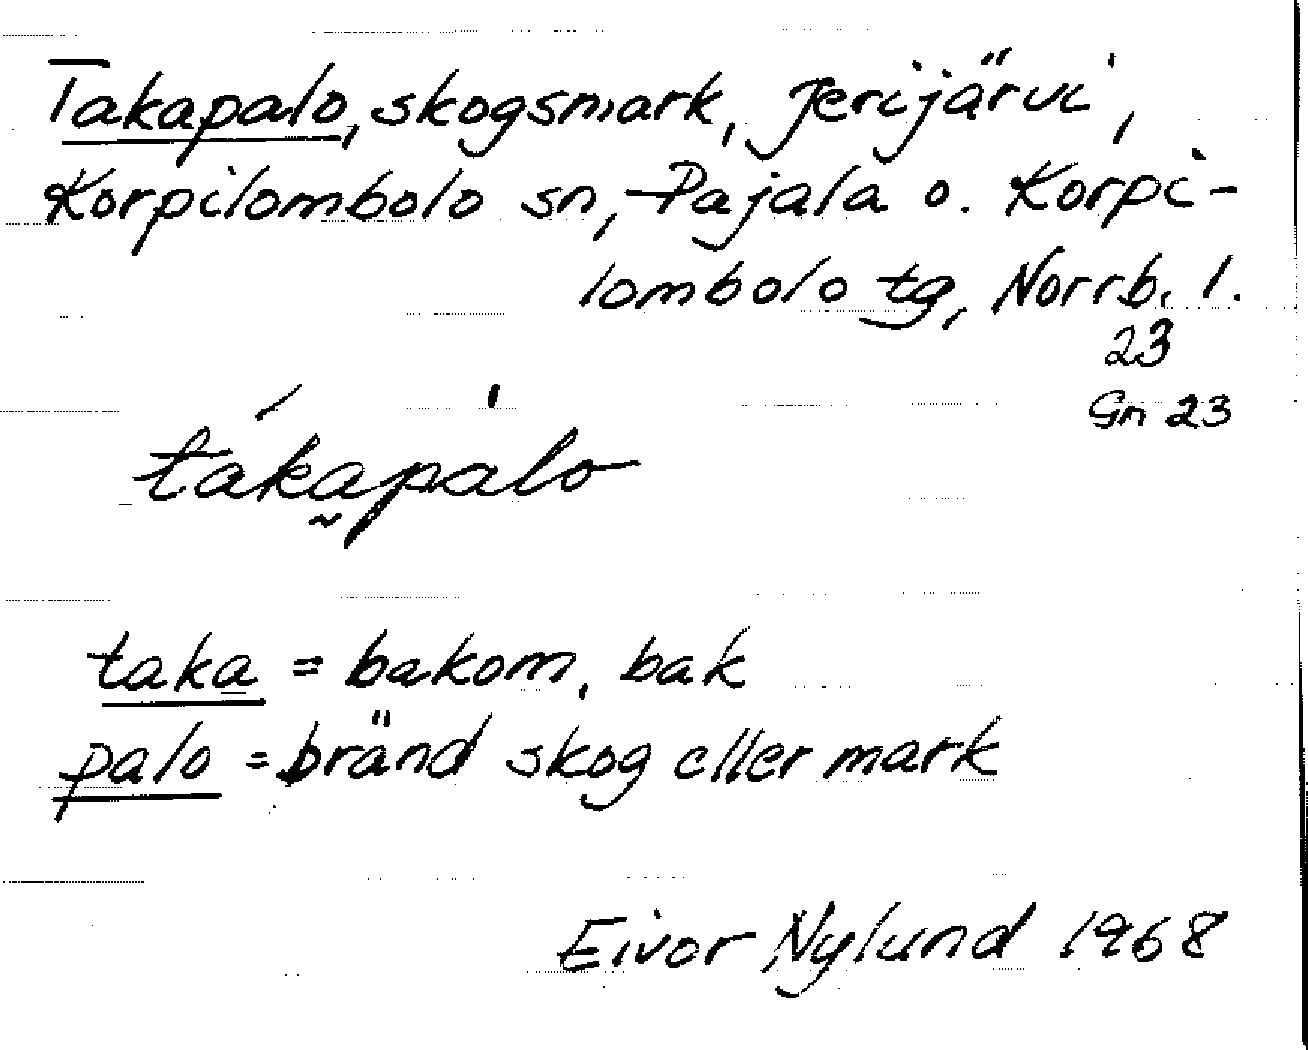 Takapalo, skogsmark, Jerijärvi,
Korpilombolo sn, Pajala o. Korpi-
lombolo tg, Norrb. l.
23
Gn 23
táka̰pàlo
taka = bakom, bak
palo = bränd skog eller mark
Eivor Nylund 1968